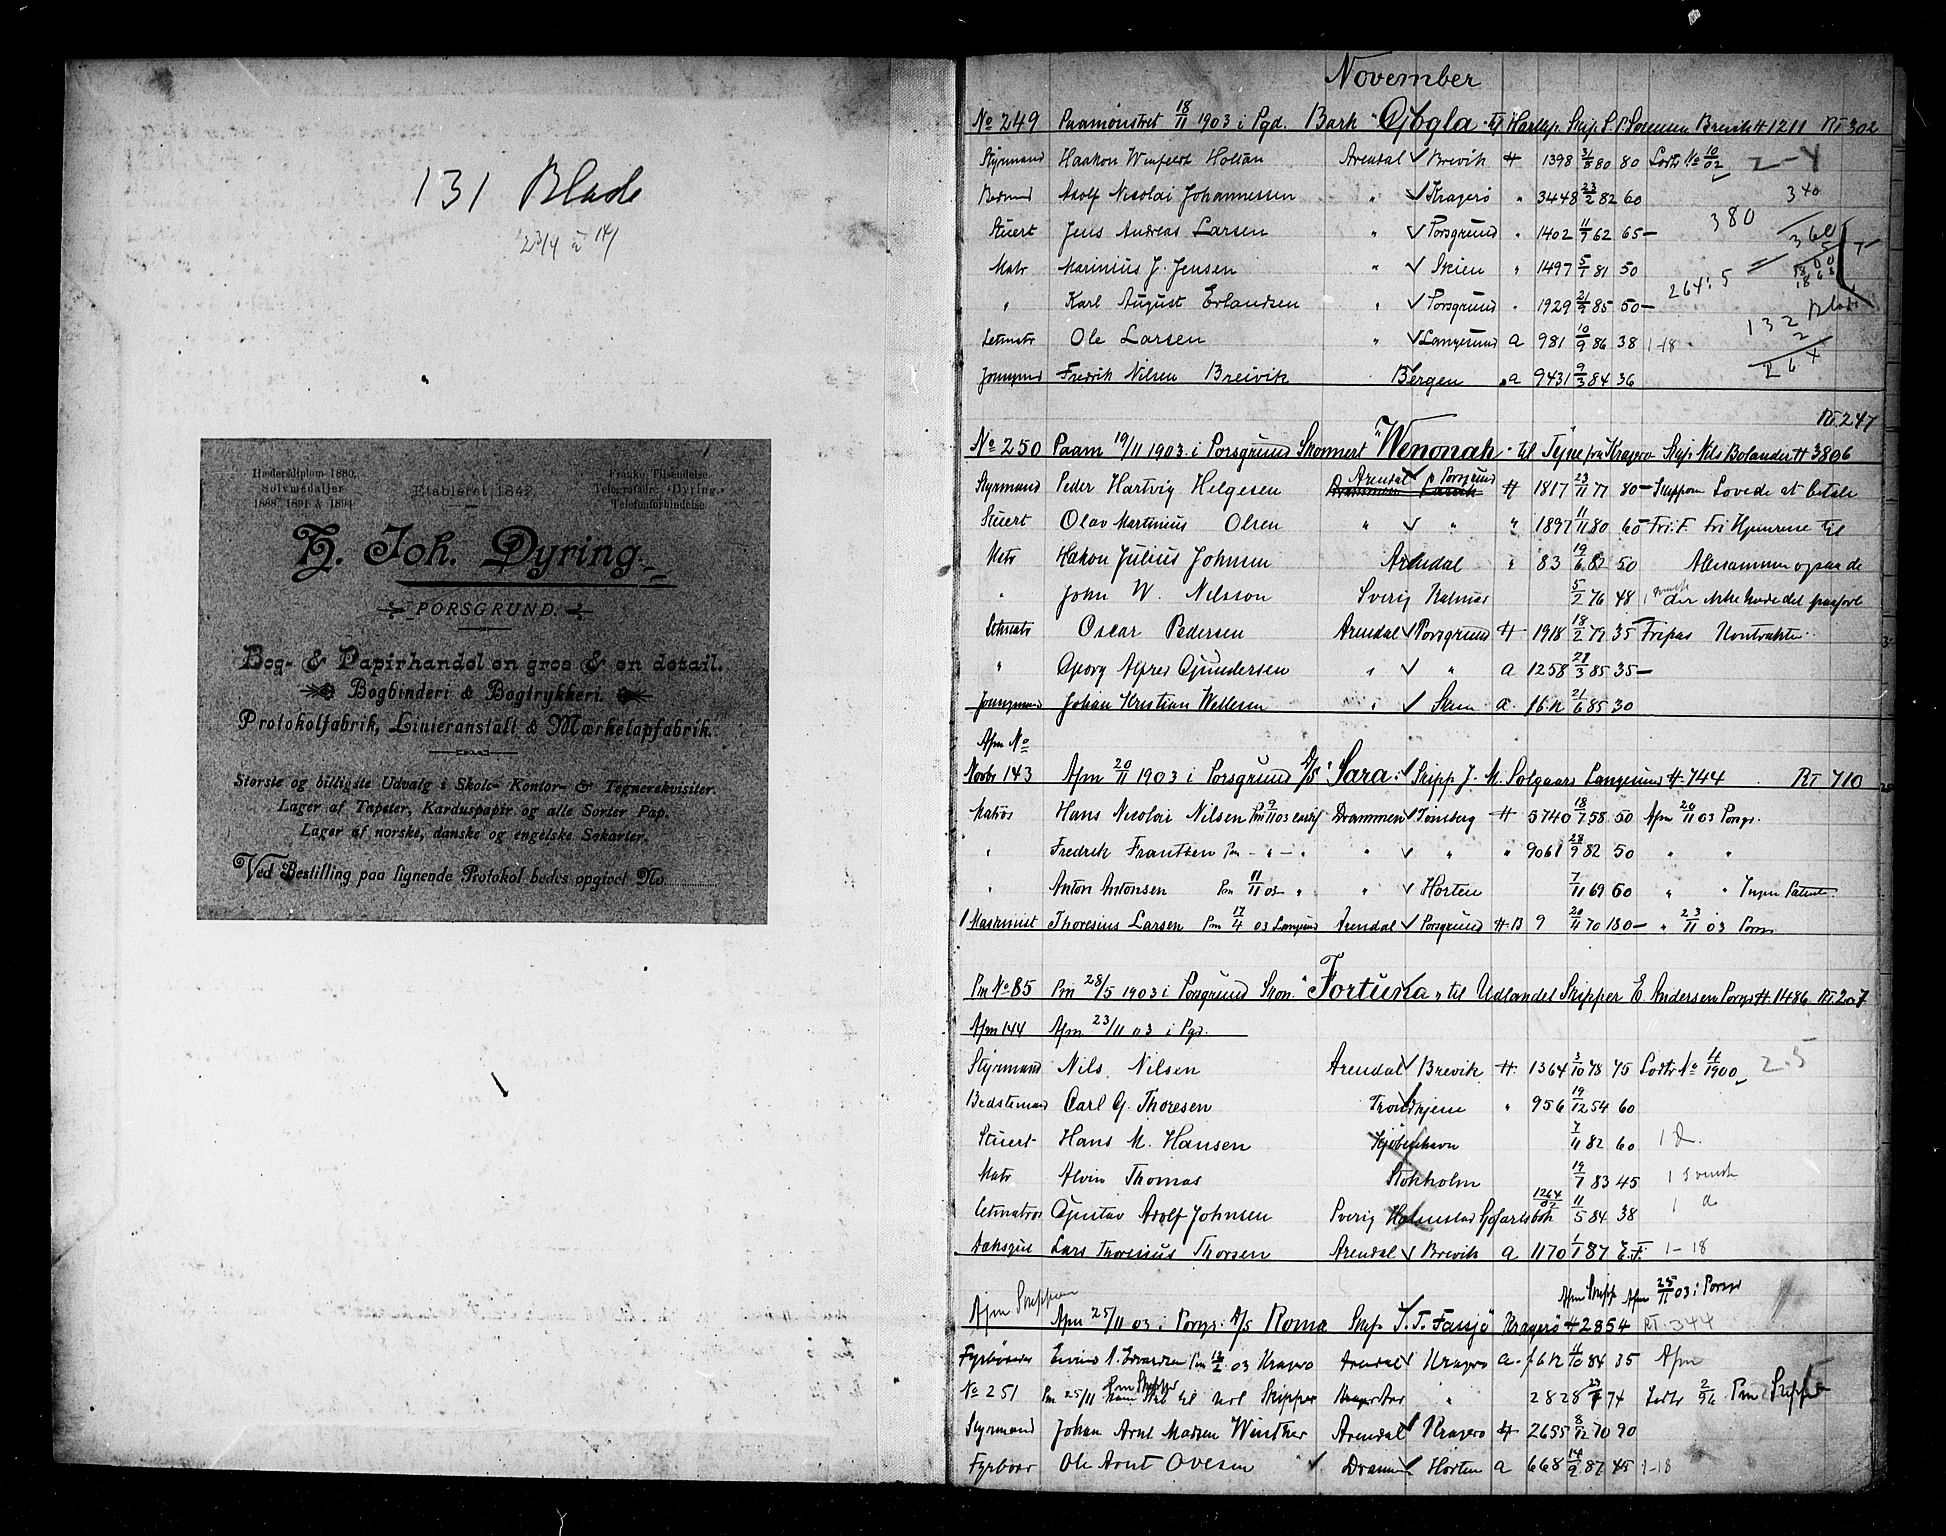 131 Blade
2 3/4 à 14/
Hæderødiplom 1880.
Sølvmedaljer
1888, 1891 & 1894
Etableret 1842.
Franko Tilsendelse
Telegrafadr. „Dyring.“
Telefonforbindelse
H. Joh. Dyring.
PORSGRUND.
Bog- & Papirhandel en gros & en detail.
Bogbinderi & Bogtrykkeri.
Protokolfabrik, Linieranstalt & Mærkelapfabrik.
Største og billigste Udvalg i Skole- Kontor- & Tegnerekvisiter.
Lager af Tapeter, Karduspapir og alle Sorter Pap.
Lager af norske, danske og engelske Søkarter.
Ved Bestilling paa lignende Protokol bedes opgivet No
November
No 249 Paamönstret 18/11 1903 i Pgd. Bark Skip S P Sörensen Brevik # 1211 RT 302
Styrmand Haakon Holtan Arendal Brevik # 1398 3/8 80 80 Lods No 10/02 2-4
Adolf Nicolai Johannessen " Kragerö " 3448 23/2 82 60 340
Stuert Jens Andreas Larsen " Porsgrund " 1402 11/7 62 65— 380
Matr Marinius J. Jensen " Skien " 1497 5/1 81 50
" Karl August Erlandsen " Porsgrund " 1929 21/9 85 50— 264:5
Letmatr Ole Larsen " Langesund a 981 10/9 86 38 1-18 132 Blade
2
264
Jungmd Fredrik Nilsen Breivik Bergen " a 9431 9/3 84 36
RT. 247
No 250 Paam 19/11 1903 i Porsgrund Skonnert "Wenonah" til Tyne fra Kragerö Skip Nils Bolander # 3806
Styrmand Peder Hartvig Helgesen Arendal Porsgrund # 1817 23/11 77 80— Skipperen Lovede at betale
Stuert Olav Martinius Olsen " " " 1897 11/11 80 65 Fri. F. Fri Hjemreise til
Matr Hakon Julius Johnsen Arendal " 83 19/6 82 50 Allesammen ogsaa de
" John W. Nilsson Sverig Kalmar 5/2 76 48 1 svensk der ikke havde det
Letmatr Oscar Pedersen Arendal Porsgrund # 1918 18/2 79 35 Fripas Kontrakten
" Georg Alfred Gundersen " " a 1258 28/3 85 35—
Jungmand Johan Kristian " a. 21/6 85 30
Afm No
Novbr 143 Afm 20/11 1903 i Porsgrund D/S "Sara" Skipp J. M. Solgaard Langesund # 744 RT 710
Matros Hans Nicolai Nilsen Pm 9/11 03 Drammen Tönsberg # 5740 18/7 58 50 Afm 20/11 03 Porsgr.
" Fredrik Frantzen Pm — " — " " " " 9061 28/9 82 50 " "
" Anton Antonsen Pm 11/11 03 " " Horten 7/11 69 60 " " Ingen Patent
1 Maskinist Thoresius Larsen Pm 17/4 03 Langesund Arendal Porsgrund # B 9 20/4 70 180— " 23/11 03 Porsgr
Pm No 85 Pm 28/5 1903 i Porsgrund Skon. "Fortuna" til Udlandet Skipper E Andersen Porsgr # 1486 RT 207
Afm 144 Afm 23/11 03 i Pgd.
Styrmand Nils Nilsen Arendal Brevik # 1364 3/10 78 75 Lods No 11/1900 2.5
Bedstemand Carl G. Thoresen Trondhjem " 956 19/12 54 60
Stuert Hans M. Hansen Kjöbenhavn 7/11 82 60 1 d.
Matr Alvin Thomas Stokholm 19/7 83 45 1 svensk
Letmatros Gustav Adolf Johnsen Sverig Halmstad 1264/02 11/5 84 38 1 a
Dæksgut Lars Thoresius Thorsen Arendal Brevik a 1170 1/1 87 E.F. 1-18
Afm Skipperen Afm Skipp Afm 25/11 03 i Porsgr
Afm 25/11 03 i Porsgr. D/S Roma Skip. Kragerö # 2854 RT. 344
Fyrböder Pm 12/2 03 Kragerö Arendal Kragerö a. 11/10 84 35 Afm
No 251 Pm 25/11 Pm Skipper til Skipper " 2828 74 Lods 2/96 Pm Skipper
Styrmand Johan Arnt Madsen Winther Arendal Kragerö # 2655 8/12 70 90
Fyrböder Ole Arnt Ovesen Dramm Horten a 668 14/9 87 45 1-18